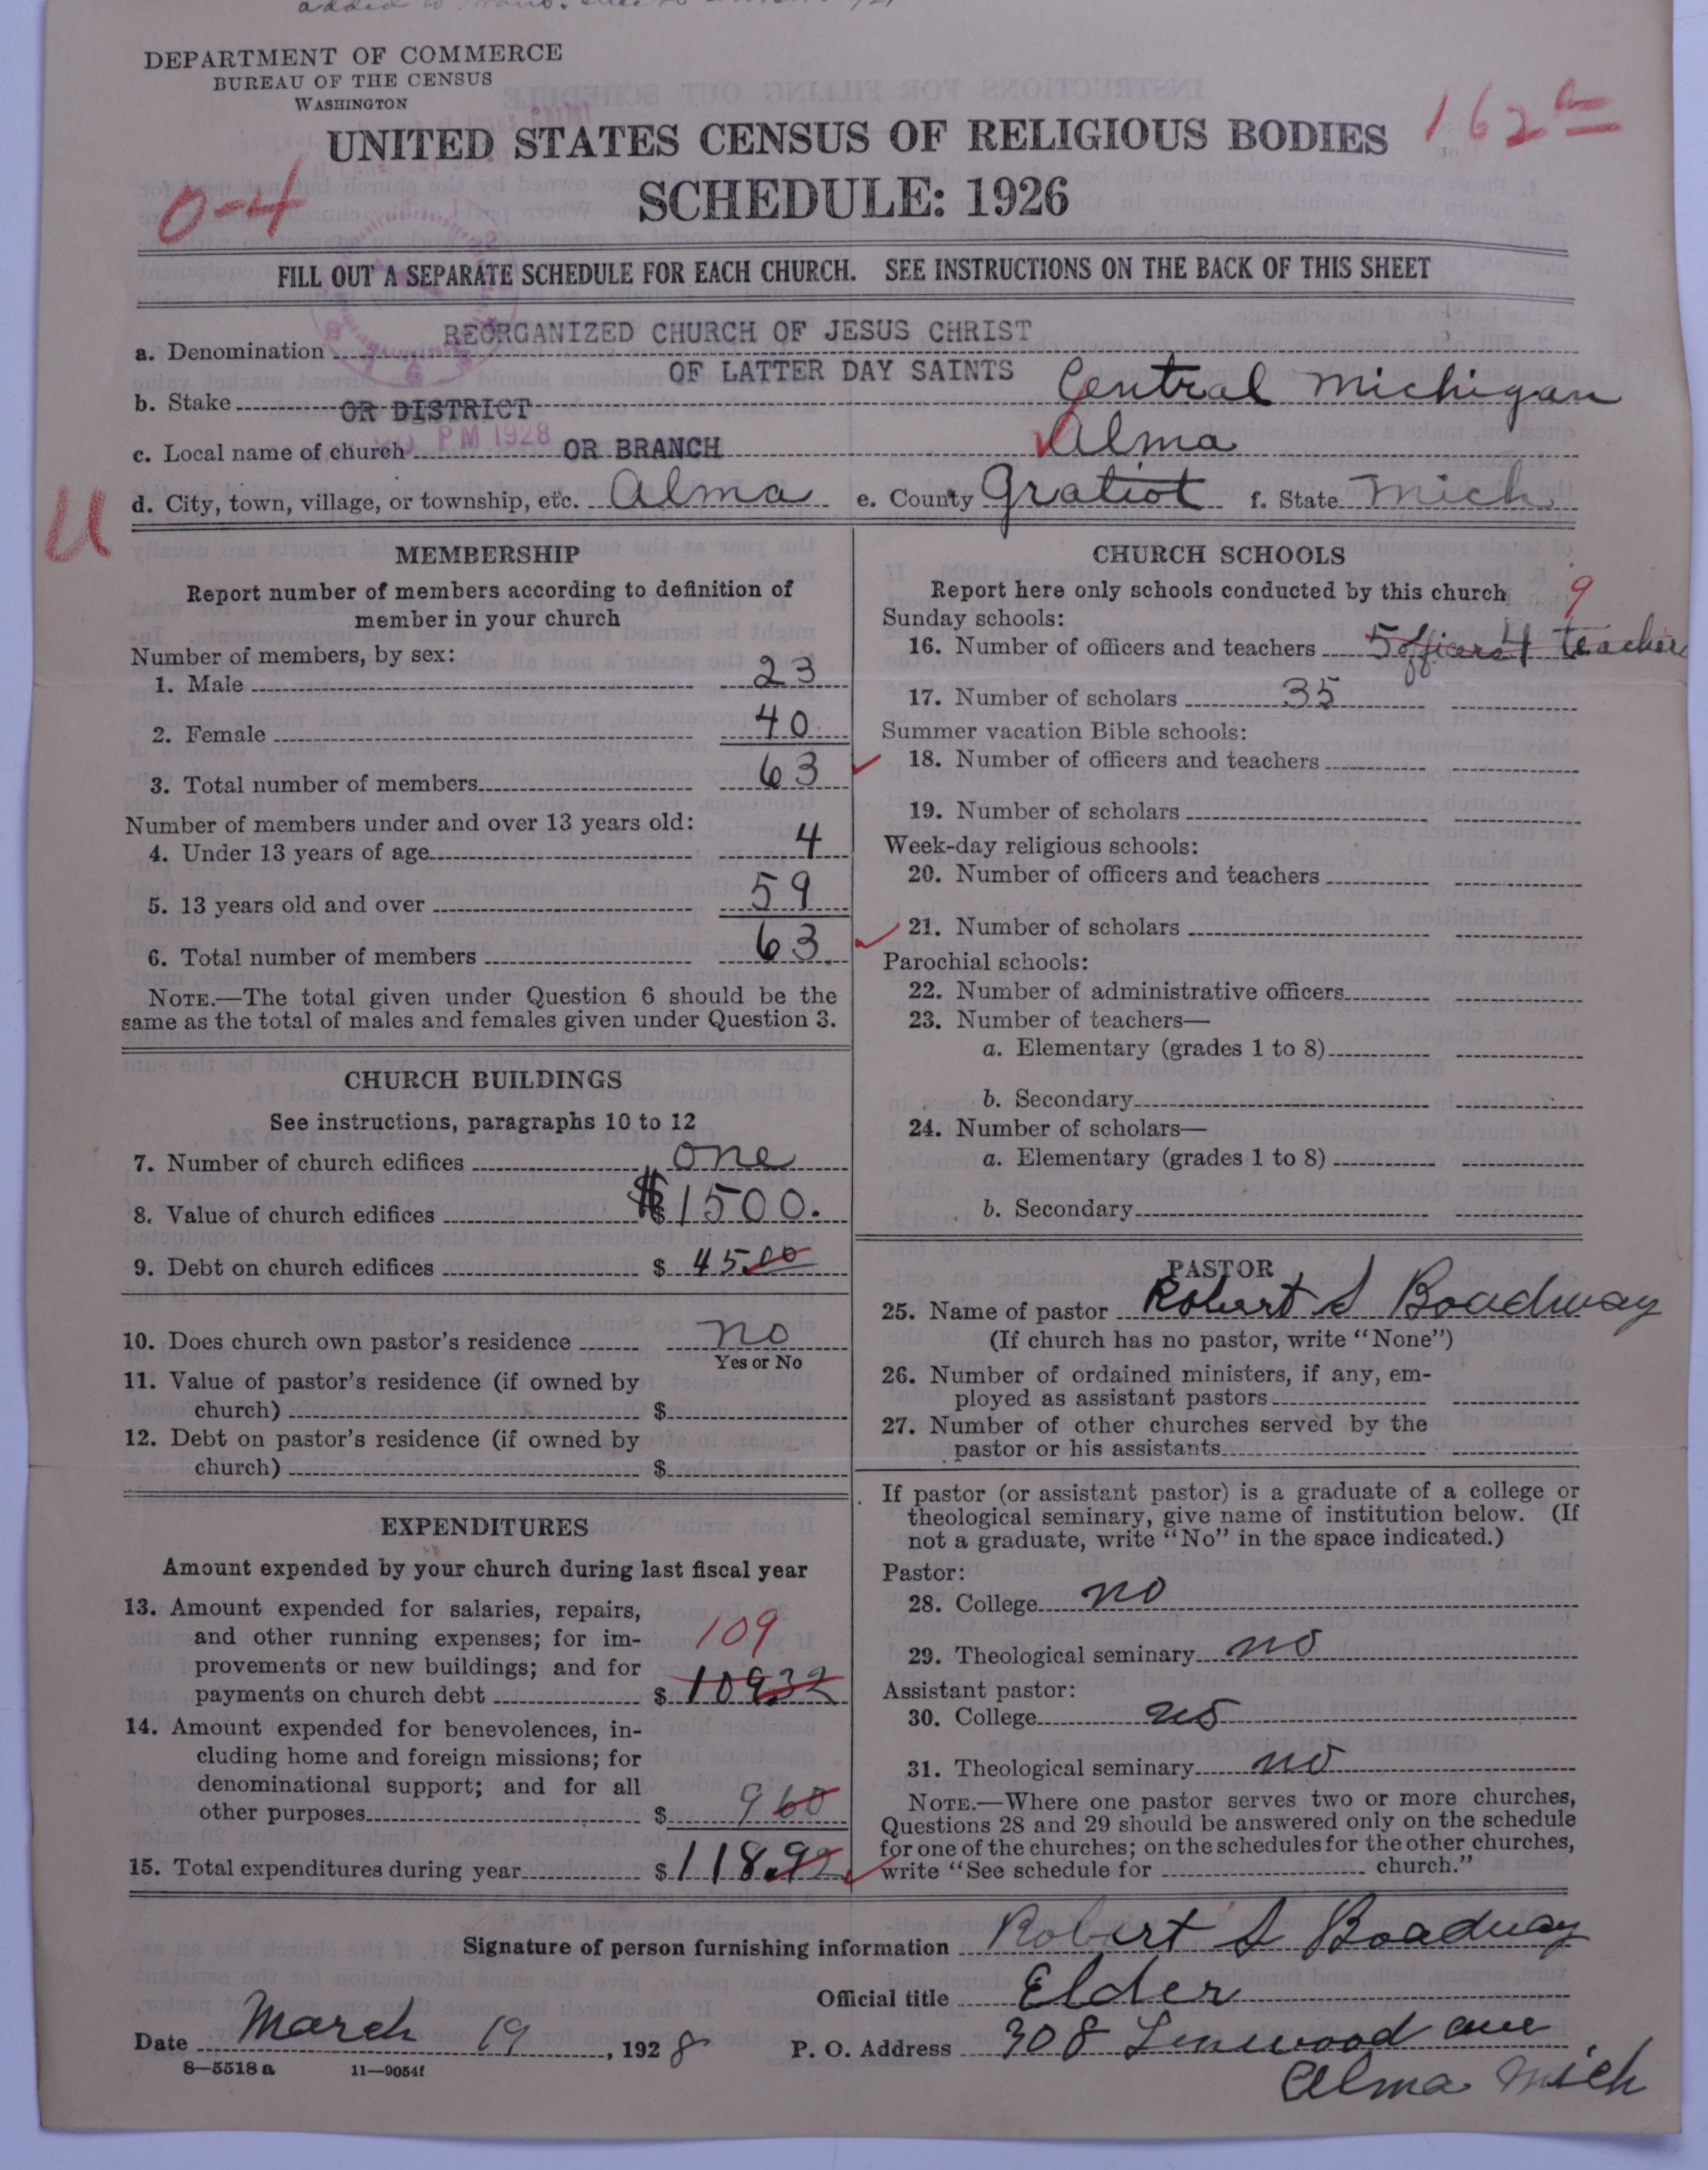 DEPARTMENT OF COMMERCE
BUREAU OF THE CENSUS
WASHINGTON
162a
UNITED STATES CENSUS OF RELIGIOUS BODIES
0-4
SCHEDULE: 1926
FILL OUT A SEPARATE SCHEDULE FOR EACH CHURCH. SEE INSTRUCTIONS ON THE BACK OF THIS SHEET
a. Denomination REORGANIZED CHURCH OF JESUS CHRIST
OF LATTER DAY SAINTS
b. Stake OR DISTRICT Central Michigan
PM 1928
c. Local name of church OR BRANCH Alma
d. City, town, village, or township, etc. Alma e. County Gratiot f. State Mich
U
MEMBERSHIP
Report number of members according to definition of
member in your church
Number of members, by sex:
1. Male 23
2. Female 40
3. Total number of members 63
Number of members under and over 13 years old:
4. Under 13 years of age 4
5. 13 years old and over 59
6. Total number of members 63
NOTE.—The total given under Question 6 should be the
same as the total of males and females given under Question 3.
CHURCH BUILDINGS
See instructions, paragraphs 10 to 12
7. Number of church edifices one
8. Value of church edifices $1500.
9. Debt on church edifices $ 45.00
10. Does church own pastor's residence no
Yes or No
11. Value of pastor's residence (if owned by
church) $
12. Debt on pastor's residence (if owned by
church) $
EXPENDITURES
Amount expended by your church during last fiscal year
13. Amount expended for salaries, repairs,
and other running expenses; for im-
provements or new buildings; and for
109
payments on church debt $ 109.32
14. Amount expended for benevolences, in-
cluding home and foreign missions; for
denominational support; and for all
other purposes $ 9 60
15. Total expenditures during year $ 118.92
CHURCH SCHOOLS
Report here only schools conducted by this church
9
Sunday schools:
16. Number of officers and teachers 5 officers 4 teachers
17. Number of scholars 35
Summer vacation Bible schools:
18. Number of officers and teachers
19. Number of scholars
Week-day religious schools:
20. Number of officers and teachers
21. Number of scholars
Parochial schools:
22. Number of administrative officers
23. Number of teachers—
a. Elementary (grades 1 to 8)
b. Secondary
24. Number of scholars—
a. Elementary (grades 1 to 8)
b. Secondary
PASTOR
25. Name of pastor Robert S Boadway
(If church has no pastor, write "None")
26. Number of ordained ministers, if any, em-
ployed as assistant pastors
27. Number of other churches served by the
pastor or his assistants
If pastor (or assistant pastor) is a graduate of a college or
theological seminary, give name of institution below. (If
not a graduate, write "No" in the space indicated.)
Pastor:
28. College no
29. Theological seminary no
Assistant pastor:
30. College no
31. Theological seminary no
NOTE.—Where one pastor serves two or more churches,
Questions 28 and 29 should be answered only on the schedule
for one of the churches; on the schedules for the other churches,
write "See schedule for church."
Signature of person furnishing information Robert S Boadway
Official title Elder
Date March 19, 1928 P. O. Address 308 Linwood ave
Alma Mich
8—5518a 11—9054f